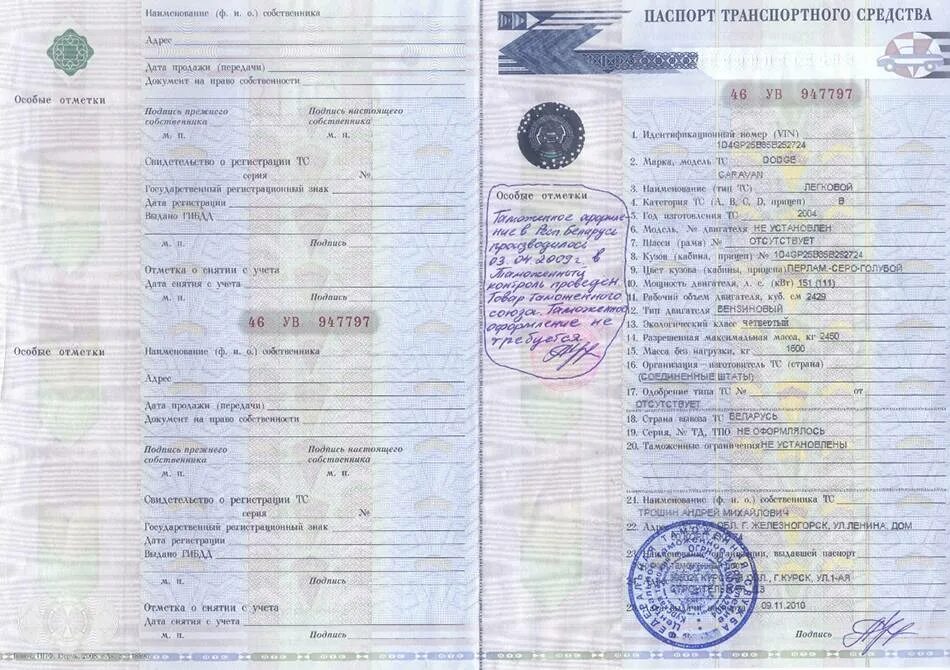 Наименование (ф. и. о.) собственника
Адрес
Дата продажи (передачи)
Документ на право собственности
Особые отметки
Подпись прежнего собственника
Подпись настоящего собственника
м. п.
м. п.
Свидетельство о регистрации ТС
серия №
Государственный регистрационный знак
Дата регистрации
Выдано ГИБДД
м. п. Подпись
Отметка о снятии с учета
Дата снятия с учета
м. п. Подпись
46 УВ 947797
Особые отметки
Наименование (ф. и. о.) собственника
Адрес
Дата продажи (передачи)
Документ на право собственности
Подпись прежнего собственника
Подпись настоящего собственника
м. п.
м. п.
Свидетельство о регистрации ТС
серия №
Государственный регистрационный знак
Дата регистрации
Выдано ГИБДД
м. п. Подпись
Отметка о снятии с учета
Дата снятия с учета
м. п. Подпись
ПАСПОРТ ТРАНСПОРТНОГО СРЕДСТВА
46 УВ 947797
Особые отметки
Таможенное оформле-
ние в Респ Беларусь
производилось
03.04.2009г. в
Таможенный
контроль проведен.
Товар Таможенного
союза. Таможенное
оформление не
требуется.
1. Идентификационный номер (VIN)
1D4GP25B85B252724
2. Марка, модель ТС DODGE
CARAVAN
3. Наименование (тип ТС) ЛЕГКОВОЙ
4. Категория ТС (А, В, С, D, прицеп) В
5. Год изготовления ТС 2004
6. Модель, № двигателя НЕ УСТАНОВЛЕН
7. Шасси (рама) № ОТСУТСТВУЕТ
8. Кузов (кабина, прицеп) № 1D4GP25B85B252724
9. Цвет кузова (кабины, прицепа) ПЕРЛАМ-СЕРО-ГОЛУБОЙ
10. Мощность двигателя, л. с. (кВт) 151 (111)
11. Рабочий объем двигателя, куб. см 2429
12. Тип двигателя БЕНЗИНОВЫЙ
13. Экологический класс четвертый
14. Разрешенная максимальная масса, кг 2450
15. Масса без нагрузки, кг 1600
16. Организация–изготовитель ТС (страна)
(СОЕДИНЕННЫЕ ШТАТЫ)
17. Одобрение типа ТС № от
ОТСУТСТВУЕТ
18. Страна вывоза ТС БЕЛАРУСЬ
19. Серия, № ТД, ТПО НЕ ОФОРМЛЯЛОСЬ
20. Таможенные ограничения НЕ УСТАНОВЛЕНЫ
21. Наименование (ф. и. о.) собственника ТС
ТРОШИН АНДРЕЙ МИХАЙЛОВИЧ
22. Адрес ОБЛ. Г. ЖЕЛЕЗНОГОРСК, УЛ.ЛЕНИНА, ДОМ
23. Наименование организации, выдавшей паспорт
КУРСКАЯ ОБЛ., Г.КУРСК, УЛ.1-АЯ
СТРОИТЕЛЬНАЯ
ФЕДЕРАЛЬНАЯ ТАМОЖЕННАЯ СЛУЖБА
09.11.2010
Подпись